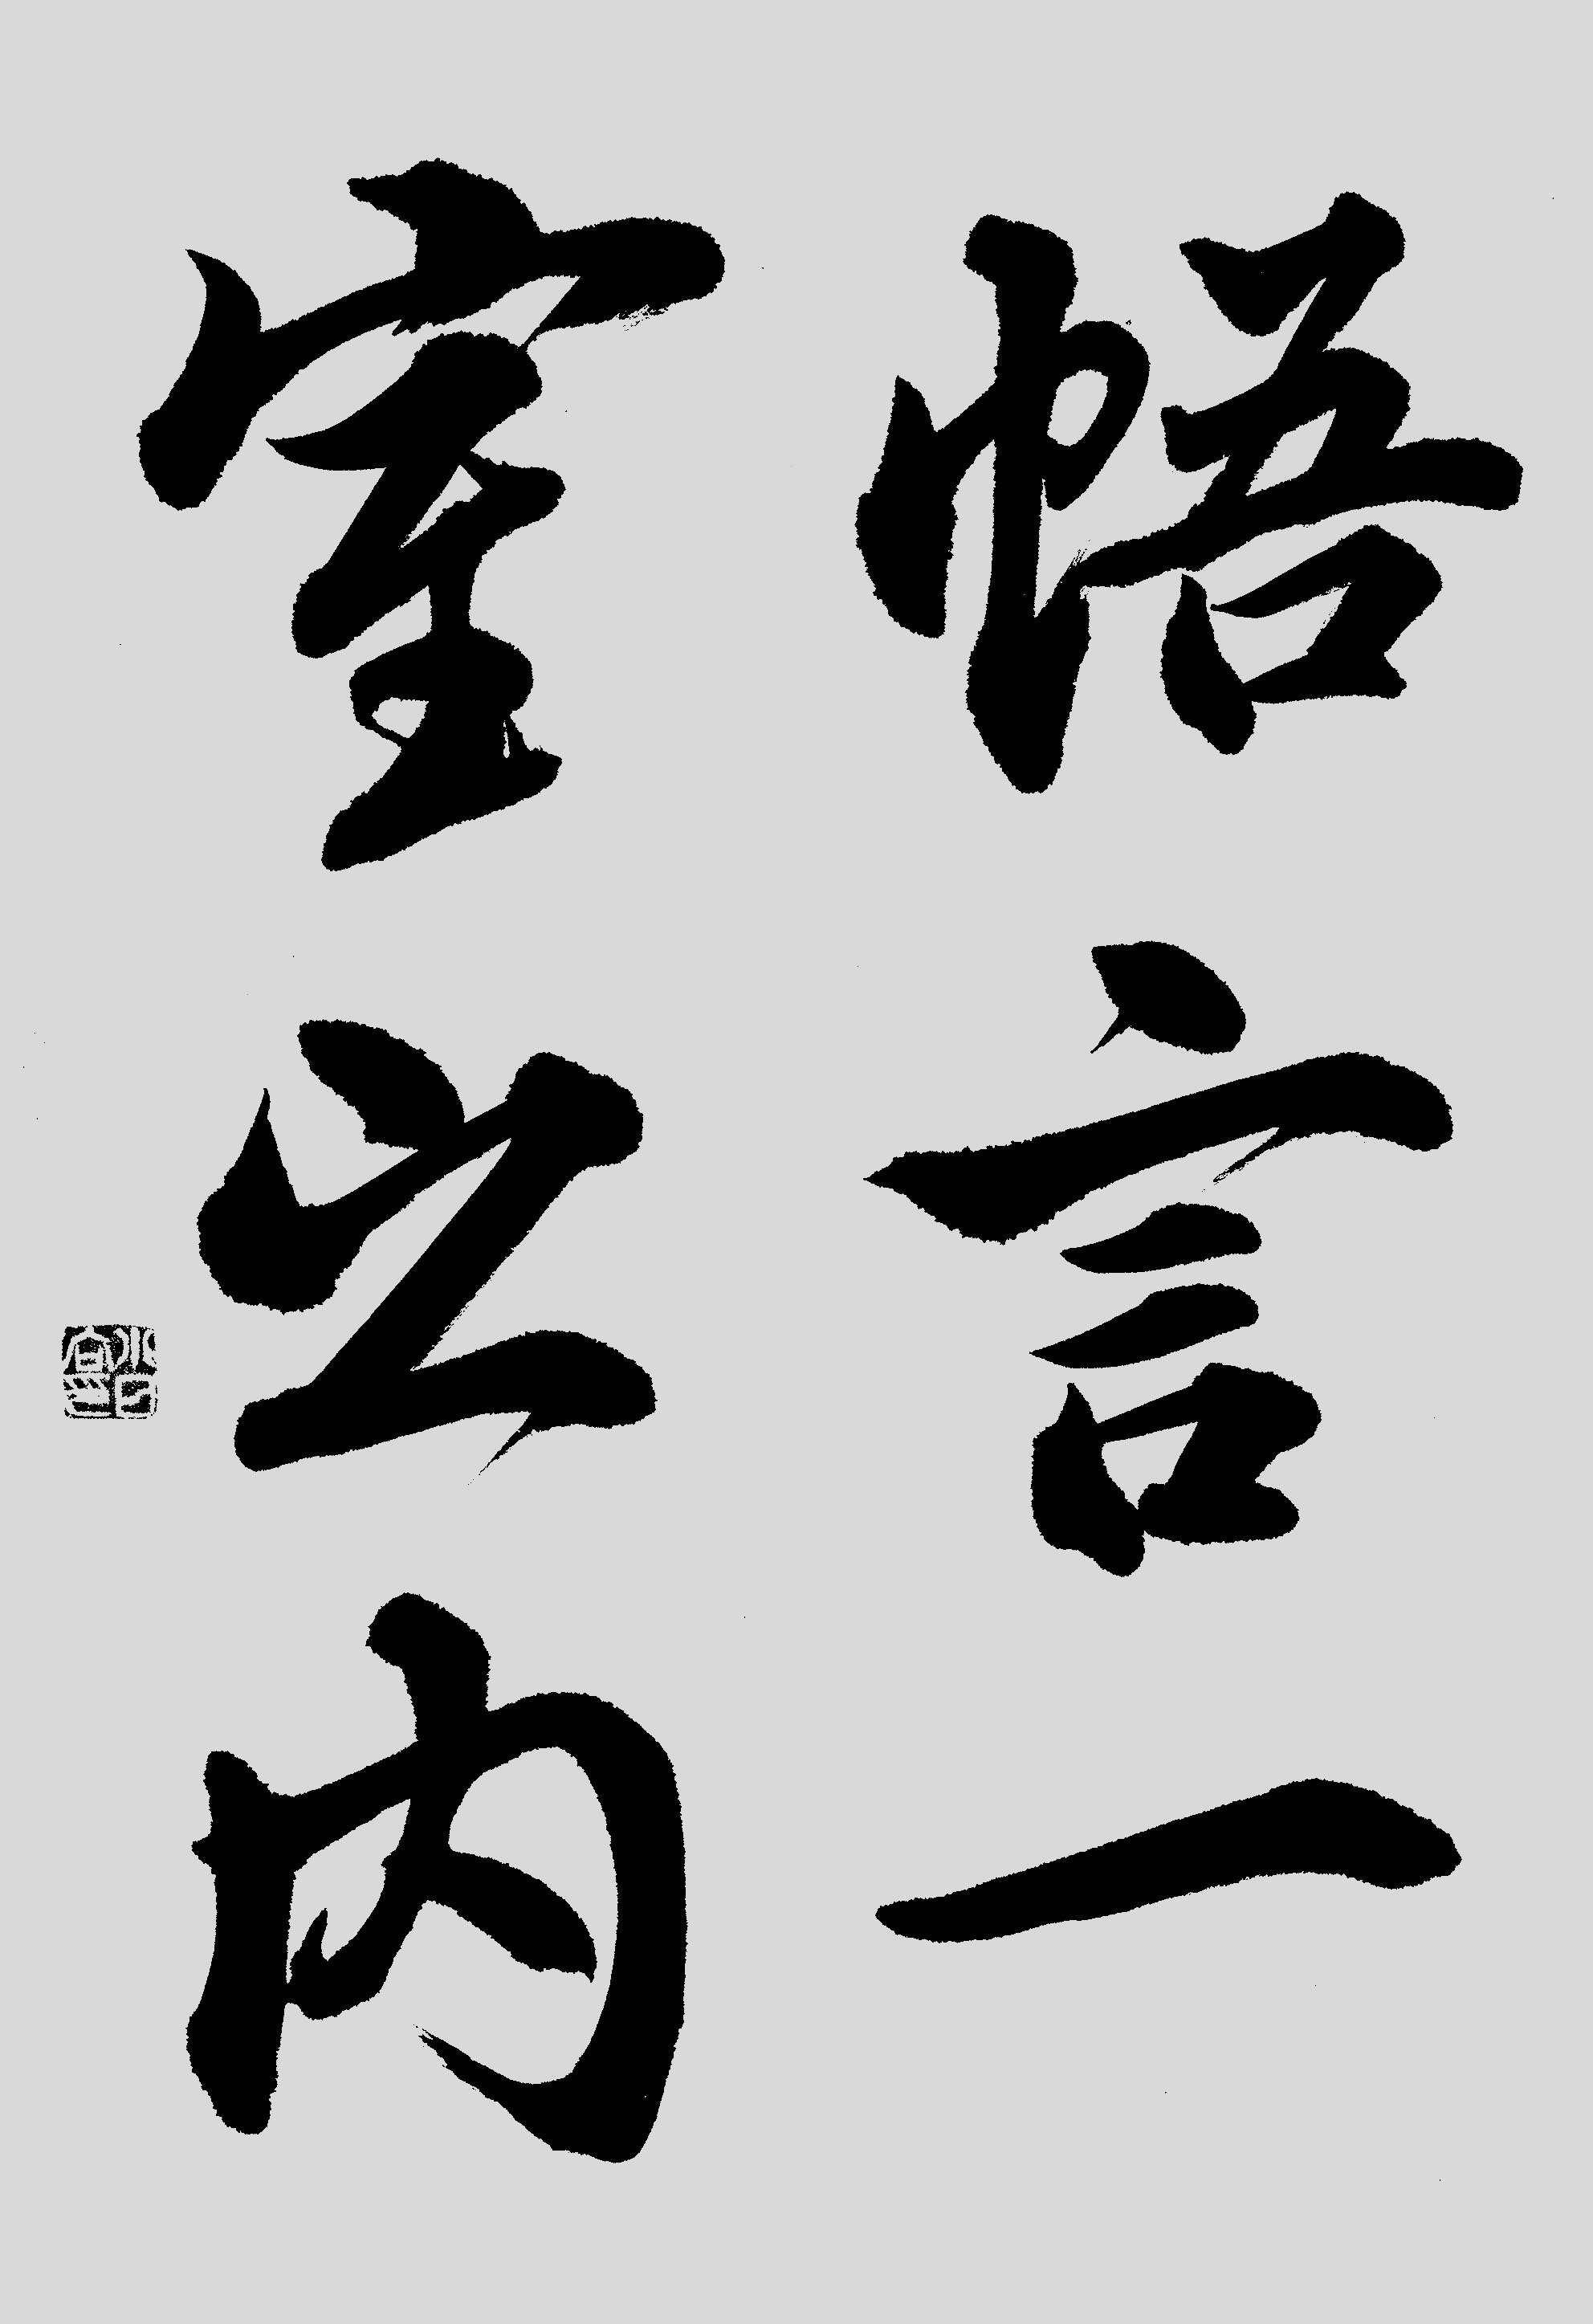 悟言一
室之内